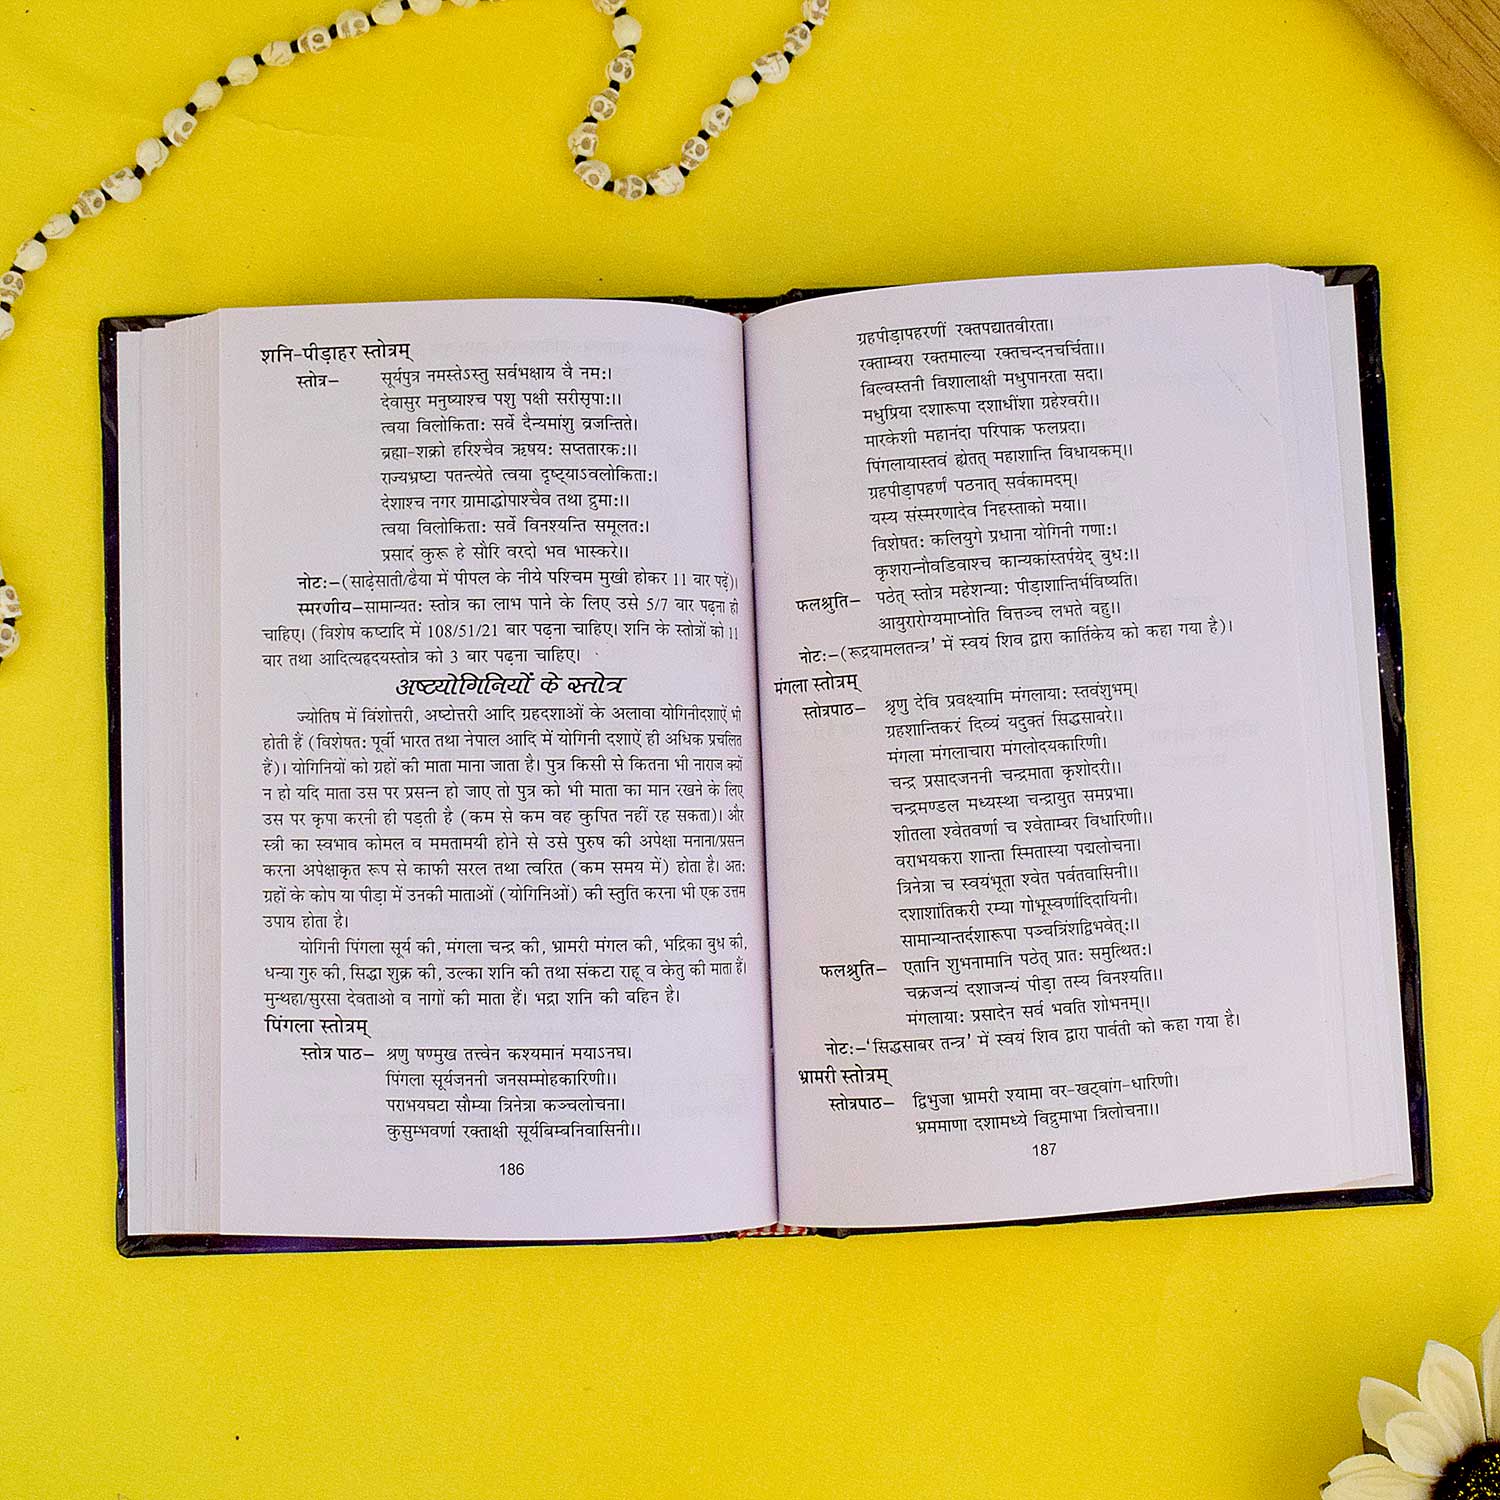 शनि-पीड़ाहर स्तोत्रम्
स्तोत्र– सूर्यपुत्र नमस्तेऽस्तु सर्वभक्षाय वै नमः।
देवासुर मनुष्याश्च पशु पक्षी सरीसृपाः।।
त्वया विलोकिताः सर्वे दैन्यमांशु व्रजन्तिते।
ब्रह्मा-शक्रो हरिश्चैव ऋषयः सप्ततारकः।।
राज्यभ्रष्टा पतन्त्येते त्वया दृष्ट्याऽवलोकिताः।
देशाश्च नगर ग्रामाद्धोपाश्चैव तथा द्रुमाः।।
त्वया विलोकिताः सर्वे विनश्यन्ति समूलतः।
प्रसादं कुरू हे सौरि वरदो भव भास्करे।।
नोटः–(साढ़ेसाती/ढैया में पीपल के नीये पश्चिम मुखी होकर 11 बार पढ़ें)।
स्मरणीय–सामान्यतः स्तोत्र का लाभ पाने के लिए उसे 5/7 बार पढ़ना ही
चाहिए। (विशेष कष्टादि में 108/51/21 बार पढ़ना चाहिए। शनि के स्तोत्रों को 11
बार तथा आदित्यहृदयस्तोत्र को 3 बार पढ़ना चाहिए।
अष्टयोगिनियों के स्तोत्र
ज्योतिष में विंशोत्तरी, अष्टोत्तरी आदि ग्रहदशाओं के अलावा योगिनीदशाऐं भी
होती हैं (विशेषतः पूर्वी भारत तथा नेपाल आदि में योगिनी दशाऐं ही अधिक प्रचलित
हैं)। योगिनियों को ग्रहों की माता माना जाता है। पुत्र किसी से कितना भी नाराज क्यों
न हो यदि माता उस पर प्रसन्न हो जाए तो पुत्र को भी माता का मान रखने के लिए
उस पर कृपा करनी ही पड़ती है (कम से कम वह कुपित नहीं रह सकता)। और
स्त्री का स्वभाव कोमल व ममतामयी होने से उसे पुरुष की अपेक्षा मनाना/प्रसन्न
करना अपेक्षाकृत रूप से काफी सरल तथा त्वरित (कम समय में) होता है। अतः
ग्रहों के कोप या पीड़ा में उनकी माताओं (योगिनिओं) की स्तुति करना भी एक उत्तम
उपाय होता है।
योगिनी पिंगला सूर्य की, मंगला चन्द्र की, भ्रामरी मंगल की, भद्रिका बुध की,
धन्या गुरु की, सिद्धा शुक्र की, उल्का शनि की तथा संकटा राहू व केतु की माता हैं।
मुन्थहा/सुरसा देवताओ व नागों की माता हैं। भद्रा शनि की बहिन है।
पिंगला स्तोत्रम्
स्तोत्र पाठ– श्रणु षण्मुख तत्त्वेन कश्यमानं मयाऽनघ।
पिंगला सूर्यजननी जनसम्मोहकारिणी।।
पराभयघटा सौम्या त्रिनेत्रा कञ्चलोचना।
कुसुम्भवर्णा रक्ताक्षी सूर्यबिम्बनिवासिनी।।
186
ग्रहपीड़ापहरणीं रक्तपद्यातवीरता।
रक्ताम्बरा रक्तमाल्या रक्तचन्दनचर्चिता।।
बिल्वस्तनी विशालाक्षी मधुपानरता सदा।
मधुप्रिया दशारूपा दशाधींशा ग्रहेश्वरी।।
मारकेशी महानंदा परिपाक फलप्रदा।
पिंगलायास्तवं ह्येतत् महाशान्ति विधायकम्।।
ग्रहपीड़ापहर्णं पठनात् सर्वकामदम्।
यस्य संस्मरणादेव निहस्ताको मया।।
विशेषतः कलियुगे प्रधाना योगिनी गणाः।
कृशरान्नौवडिवाश्च कान्यकांस्तर्पयेद् बुधः।।
फलश्रुति– पठेत् स्तोत्र महेशन्याः पीड़ाशान्तिर्भविष्यति।
आयुरारोग्यमाप्नोति वित्तञ्च लभते बहु।।
नोटः–(रूद्रयामलतन्त्र' में स्वयं शिव द्वारा कार्तिकेय को कहा गया है)।
मंगला स्तोत्रम्
स्तोत्रपाठ– श्रृणु देवि प्रवक्ष्यामि मंगलायाः स्तवंशुभम्।
ग्रहशान्तिकरं दिव्यं यदुक्तं सिद्धसाबरे।।
मंगला मंगलाचारा मंगलोदयकारिणी।
चन्द्र प्रसादजननी चन्द्रमाता कृशोदरी।।
चन्द्रमण्डल मध्यस्था चन्द्रायुत समप्रभा।
शीतला श्वेतवर्णा च श्वेताम्बर विधारिणी।।
वराभयकरा शान्ता स्मितास्या पद्मलोचना।
त्रिनेत्रा च स्वयंभूता श्वेत पर्वतवासिनी।।
दशाशांतिकरी रम्या गोभूस्वर्णादिदायिनी।
सामान्यान्तर्दशारूपा पञ्चत्रिंशद्विभवेत्ः।।
फलश्रुति– एतानि शुभनामानि पठेत् प्रातः समुत्थितः।
चक्रजन्यं दशाजन्यं पीड़ा तस्य विनश्यति।।
मंगलायाः प्रसादेन सर्व भवति शोभनम्।।
नोटः–'सिद्धसाबर तन्त्र' में स्वयं शिव द्वारा पार्वती को कहा गया है।
भ्रामरी स्तोत्रम्
स्तोत्रपाठ– द्विभुजा भ्रामरी श्यामा वर-खट्वांग-धारिणी।
भ्रममाणा दशामध्ये विद्रुमाभा त्रिलोचना।।
187